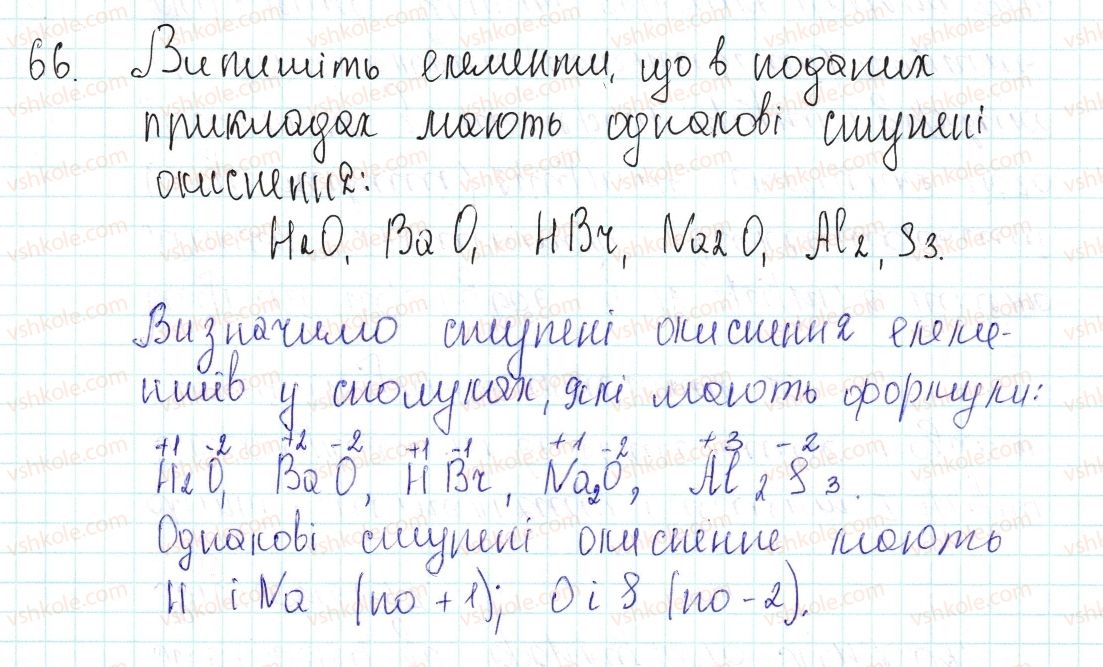 66. Випишіть елементи, що в поданих
прикладах мають однакові ступені
окиснення:
H2O, BaO, HBr, Na2O, Al2, S3.
Визначимо ступені окиснення елеме-
нтів у сполуках, які мають формули:
+1 -2 +2 -2 +1 -1 +1 -2 +3 -2
H2O, BaO, HBr, Na2O, Al2S3.
Однакові ступені окиснення мають
H і Na (по +1); O і S (по -2).